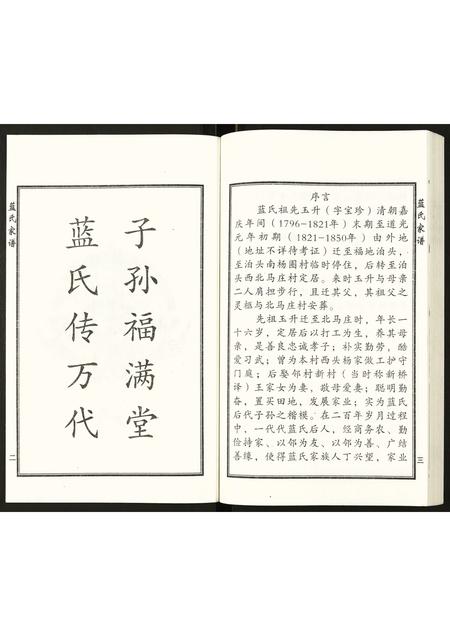 蓝氏家谱
子孙福满堂
蓝氏传万代
二
序言
蓝氏祖先玉升（字宝珍）清朝嘉
庆年间（1796-1821年）末期至道光
元年初期（1821-1850年）由外地
（地址不详待考证）迁至福地泊头，
至泊头南杨圈村临时停住，后转至泊
头西北马庄村定居。来时玉升与母亲
二人肩担步行，且迁其父，其祖父之
灵柩与北马庄村安葬。
先祖玉升迁至北马庄时，年长一
十六岁，定居后以打工为生，养其母
亲，是善良忠诚孝子；朴实勤劳，酷
爱习武；曾为本村西头杨家做工护守
门庭；后娶邻村新村（当时称新桥
译）王家女为妻，敬母爱妻；聪明勤
奋，置买田地，发展家业；实为蓝氏
后代子孙之楷模。在二百年岁月过程
中，一代代蓝氏后人，经商务农、勤
俭持家、以邻为友、以邻为善、广结
善缘，使得蓝氏家族人丁兴望，家业
蓝氏家谱
三